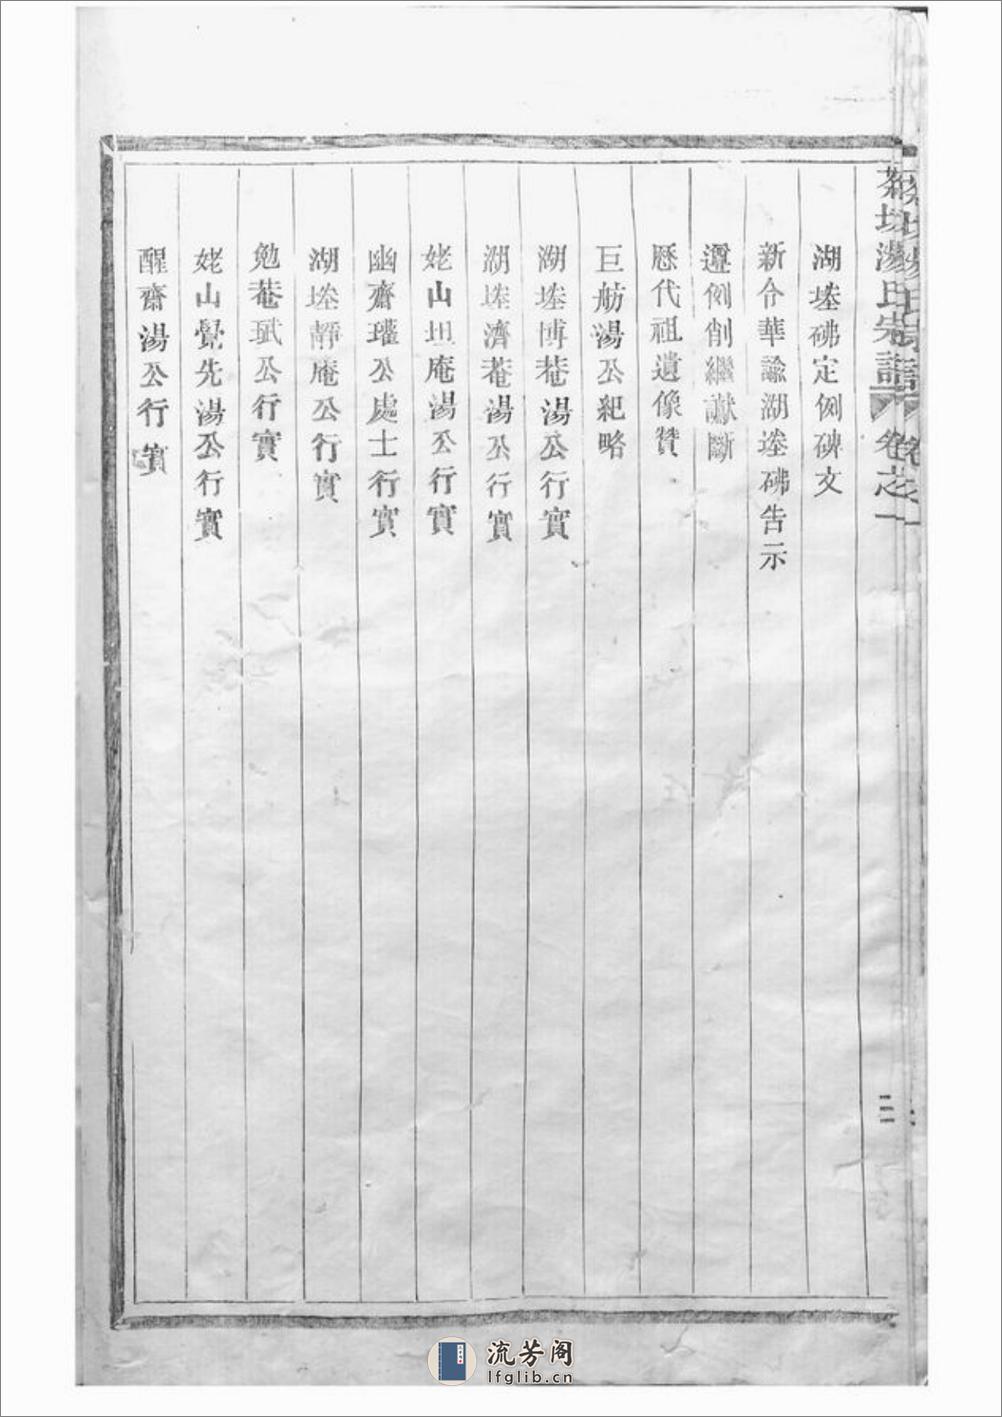 茶坡湯氏宗譜 卷之一
湖塰砩定例碑文
新令華諭湖塰砩告示
遵例削繼讞斷
歷代祖遺像贊
巨舫湯公紀略
湖塰博菴湯公行實
湖塰濟菴湯公行實
姥山坦庵湯公行實
幽齋瓘公處士行實
湖塰靜庵公行實
勉菴珷公行實
姥山覺先湯公行實
醒齋湯公行實
二
流芳阁
lfglib.cn